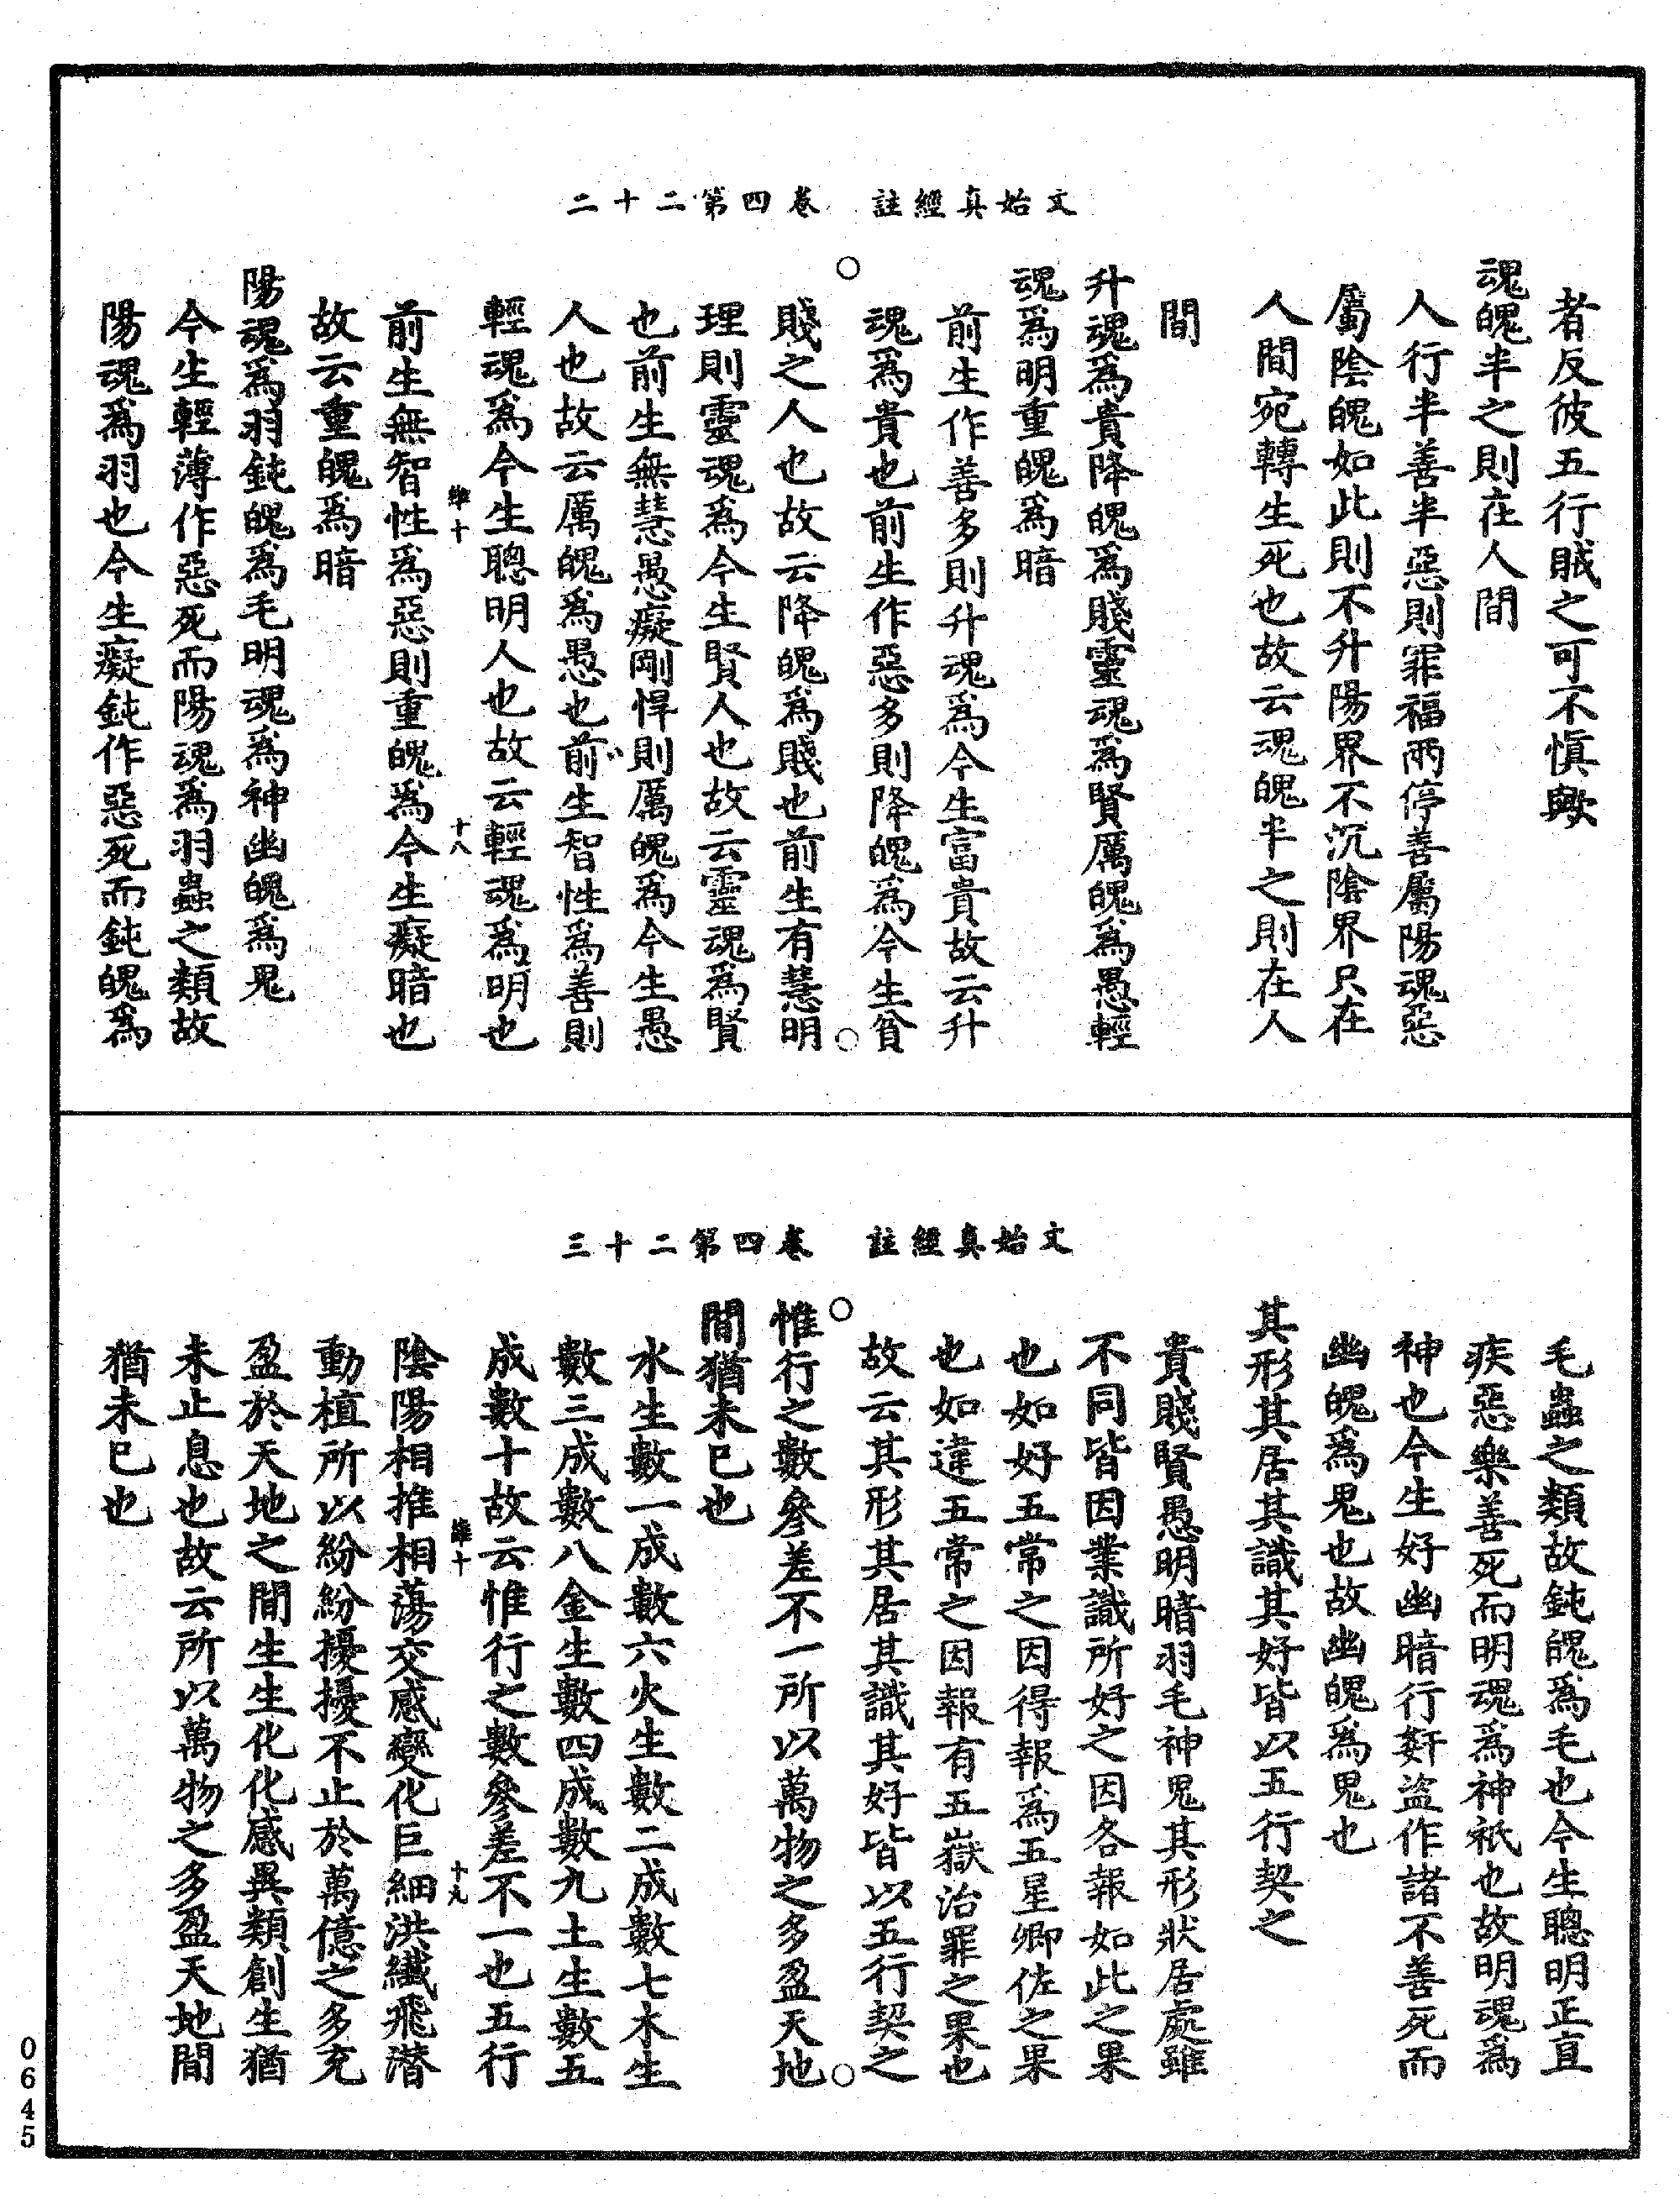 文始真經註　卷四第二十二
者反彼五行賊之可不慎歟
魂魄半之則在人間
人行半善半惡則罪福兩停善屬陽魂惡
屬陰魄如此則不升陽界不沉陰界只在
人間宛轉生死也故云魂魄半之則在人
間
升魂爲貴降魄爲賤靈魂爲賢厲魄爲愚輕
魂爲明重魄爲暗
前生作善多則升魂爲今生富貴故云升
魂爲貴也前生作惡多則降魄爲今生貧
賤之人也故云降魄爲賤也前生有慧明
理則靈魂爲今生賢人也故云靈魂爲賢
也前生無慧愚癡剛悍則厲魄爲今生愚
人也故云厲魄爲愚也前生智性爲善則
輕魂爲今生聰明人也故云輕魂爲明也
維十　十八
前生無智性爲惡則重魄爲今生癡暗也
故云重魄爲暗
陽魂爲羽鈍魄爲毛明魂爲神幽魄爲鬼
今生輕薄作惡死而陽魂爲羽蟲之類故
陽魂爲羽也今生癡鈍作惡死而鈍魄爲
文始真經註　卷四第二十三
毛蟲之類故鈍魄爲毛也今生聰明正直
疾惡樂善死而明魂爲神祇也故明魂爲
神也今生好幽暗行姧盜作諸不善死而
幽魄爲鬼也故幽魄爲鬼也
其形其居其識其好皆以五行契之
貴賤賢愚明暗羽毛神鬼其形狀居處雖
不同皆因業識所好之因各報如此之果
也如好五常之因得報爲五星卿佐之果
也如違五常之因報有五嶽治罪之果也
故云其形其居其識其好皆以五行契之
惟行之數參差不一所以萬物之多盈天地
間猶未已也
水生數一成數六火生數二成數七木生
數三成數八金生數四成數九土生數五
成數十故云惟行之數參差不一也五行
維十　十九
陰陽相推相蕩交感變化巨細洪纖飛潛
動植所以紛紛擾擾不止於萬億之多充
盈於天地之間生生化化感異類創生猶
未止息也故云所以萬物之多盈天地間
猶未已也
0645